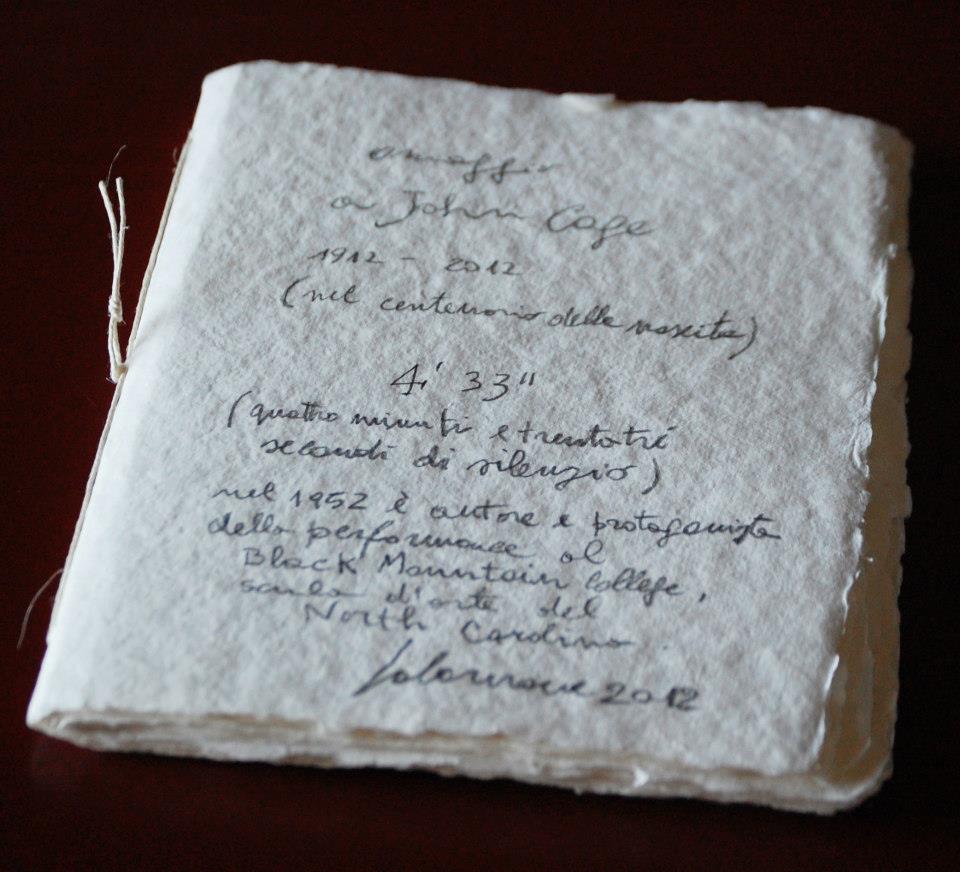 omaggio
a John Cage
1912 - 2012
(nel centenario della nascita)
4' 33"
(quattro minuti e trentatré
secondi di silenzio)
nel 1952 è autore e protagonista
della performance al
Black Mountain College,
scuola d'arte del
North Carolina.
2012